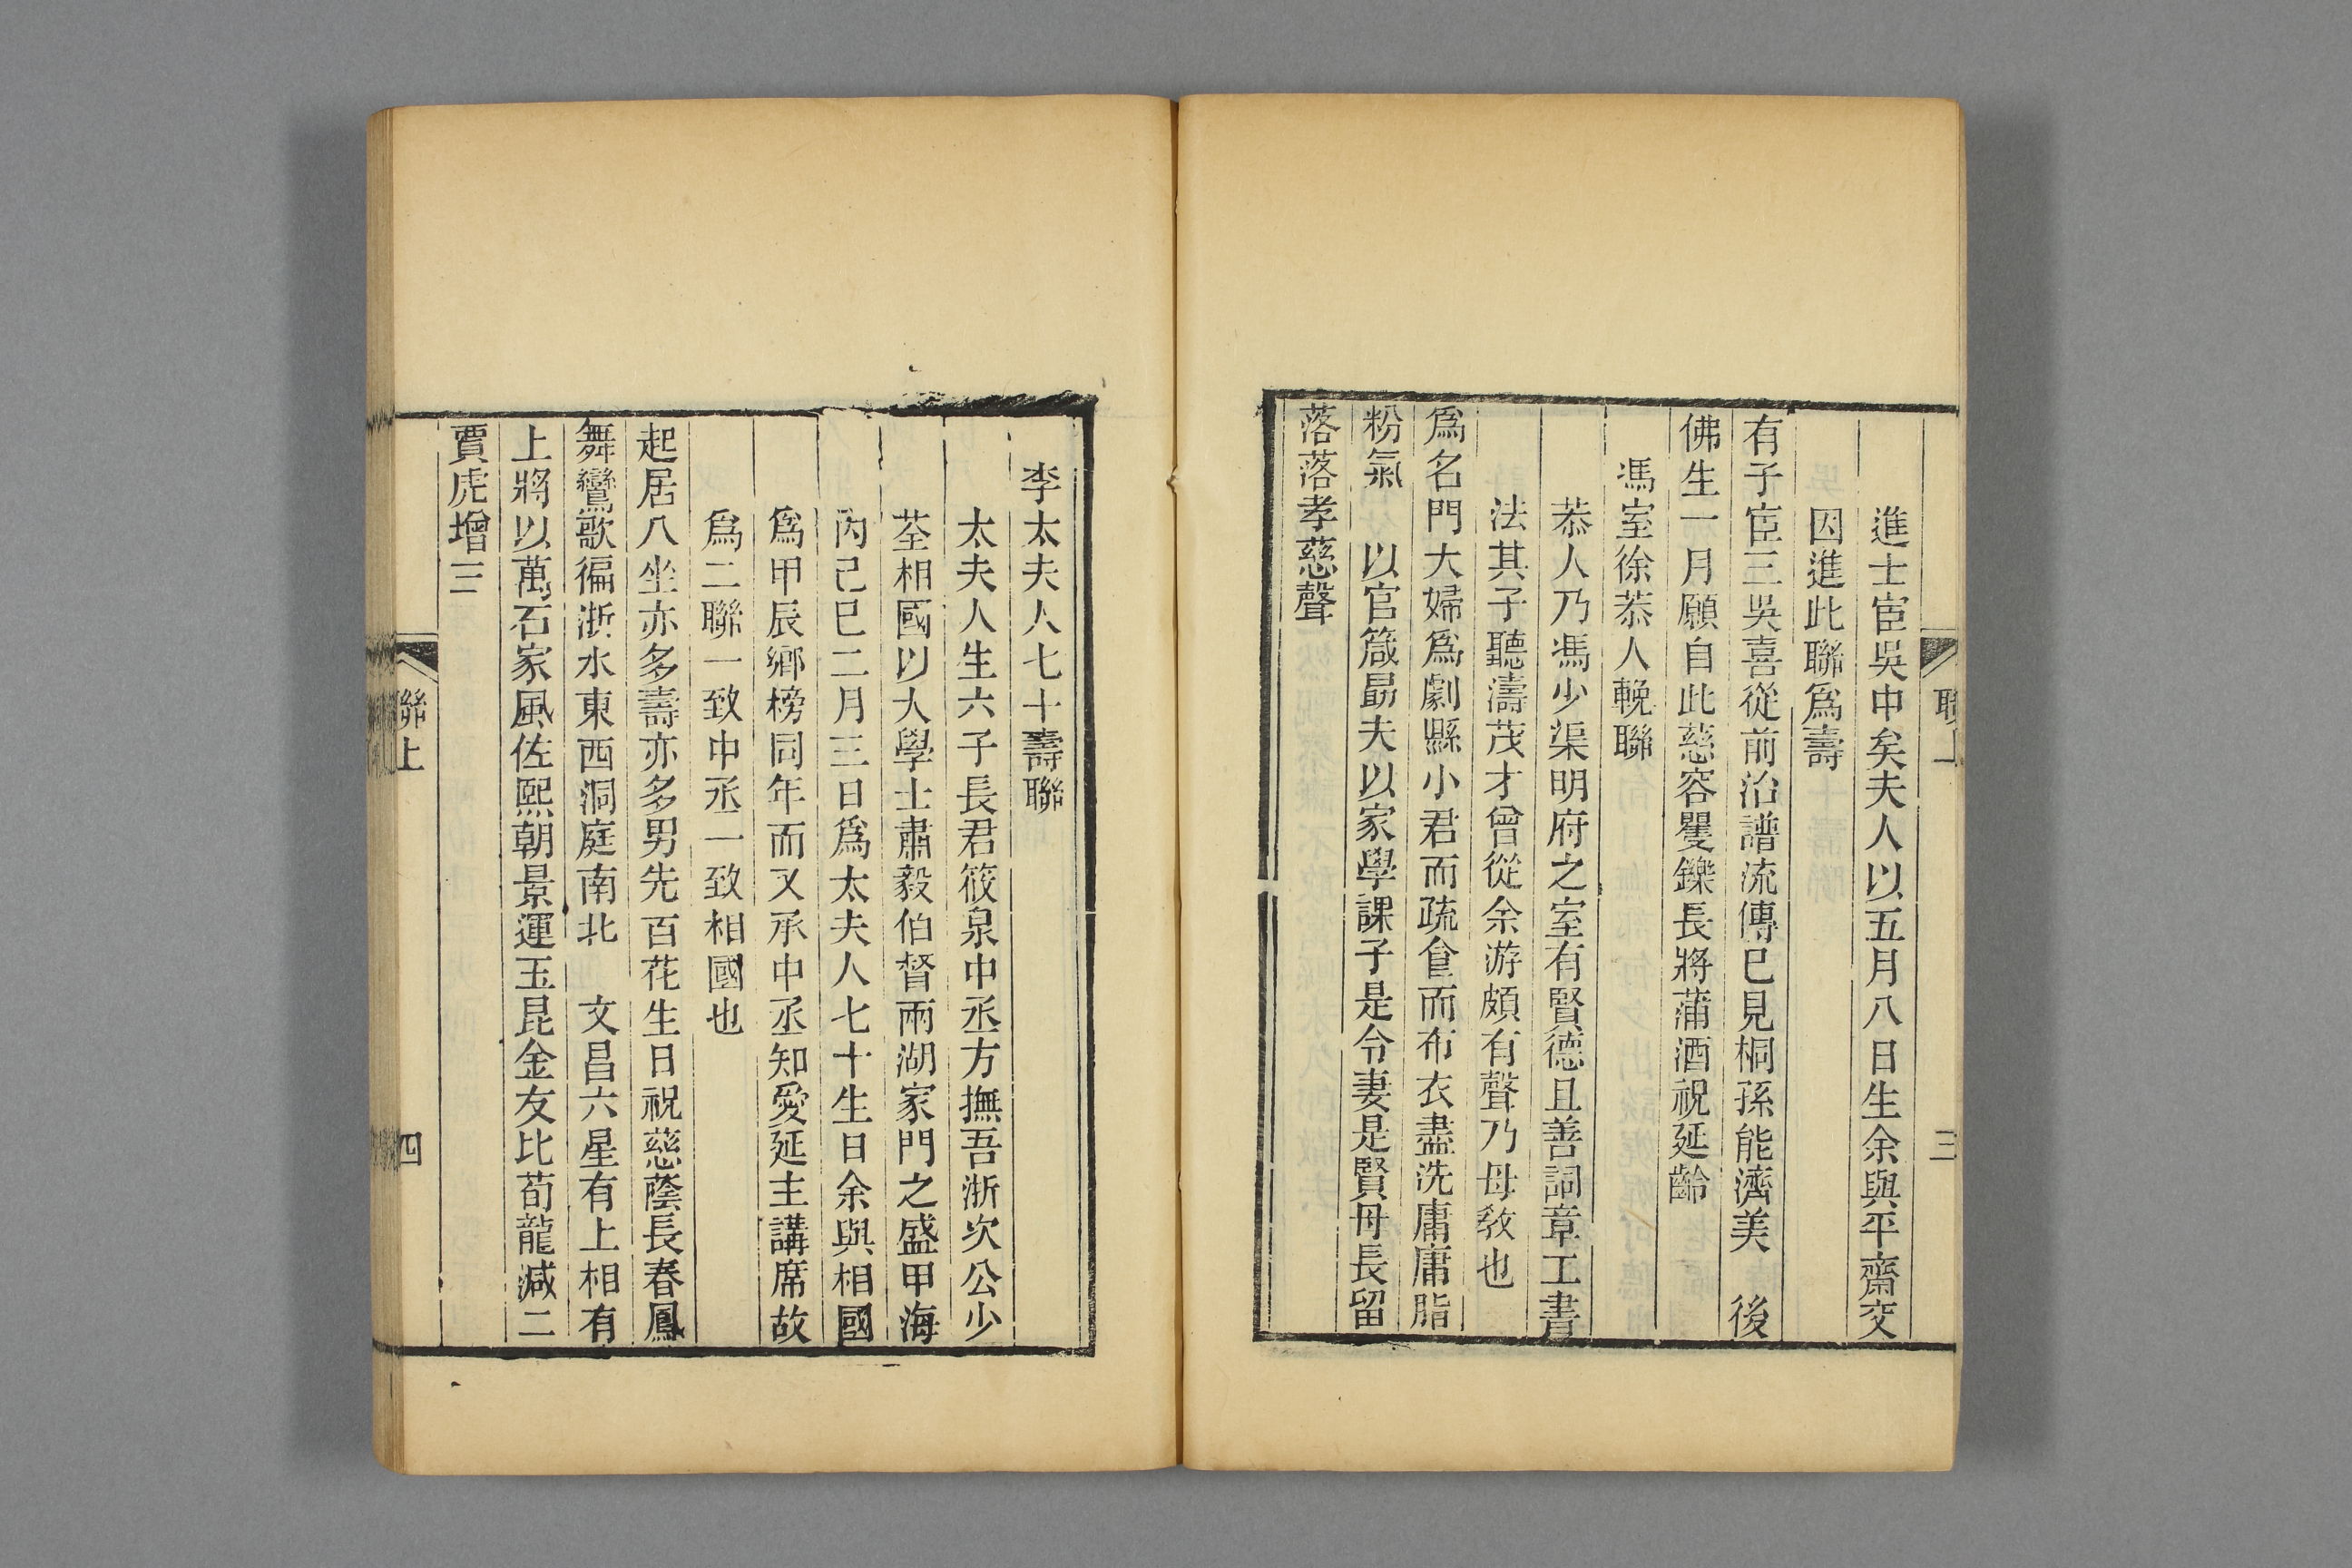 進士宦吳中矣夫人以五月八日生余與平齋交
因進此聯爲壽
有子宦三吳喜從前治譜流傳已見桐孫能濟美　後
佛生一月願自此慈容矍鑠長將蒲酒祝延齡
馮室徐恭人輓聯
恭人乃馮少渠明府之室有賢德且善詞章工書
法其子聽濤茂才曾從余游頗有聲乃母敎也
爲名門大婦爲劇縣小君而疏食而布衣盡洗庸庸脂
粉氣　以官箴勗夫以家學課子是令妻是賢母長留
落落孝慈聲
聯上
三
李太夫人七十壽聯
太夫人生六子長君筱泉中丞方撫吾浙次公少
荃相國以大學士肅毅伯督兩湖家門之盛甲海
內己巳二月三日爲太夫人七十生日余與相國
爲甲辰鄉榜同年而又承中丞知愛延主講席故
爲二聯一致中丞一致相國也
起居八坐亦多壽亦多男先百花生日祝慈蔭長春鳳
舞鸞歌徧浙水東西洞庭南北　文昌六星有上相有
上將以萬石家風佐熙朝景運玉昆金友比荀龍減二
賈虎增三
聯上
四